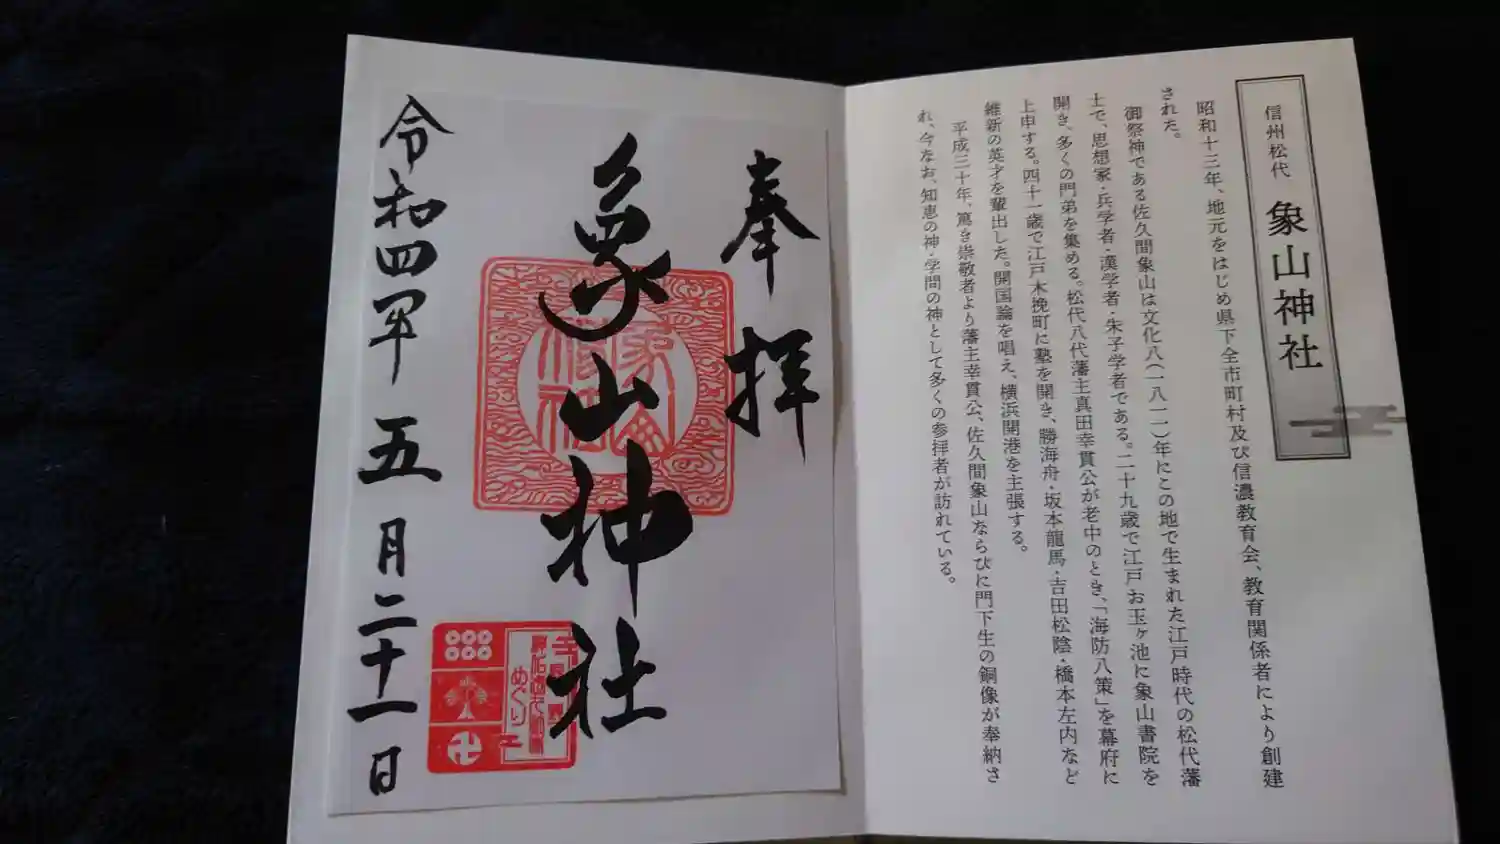 信州松代 象山神社
昭和十三年、地元をはじめ県下全市町村及び信濃教育会、教育関係者により創建
された。
御祭神である佐久間象山は文化八(一八一一)年にこの地で生まれた江戸時代の松代藩
士で、思想家・兵学者・漢学者・朱子学者である。二十九歳で江戸お玉ヶ池に象山書院を
開き、多くの門弟を集める。松代八代藩主真田幸貫公が老中のとき、「海防八策」を幕府に
上申する。四十一歳で江戸木挽町に塾を開き、勝海舟・坂本龍馬・吉田松陰・橋本左内など
維新の英才を輩出した。開国論を唱え、横浜開港を主張する。
平成三十年、篤き崇敬者より藩主幸貫公、佐久間象山ならびに門下生の銅像が奉納さ
れ、今なお、知恵の神・学問の神として多くの参拝者が訪れている。
奉拝
象山神社
象山神社
めぐり
卍
令和四年五月二十一日